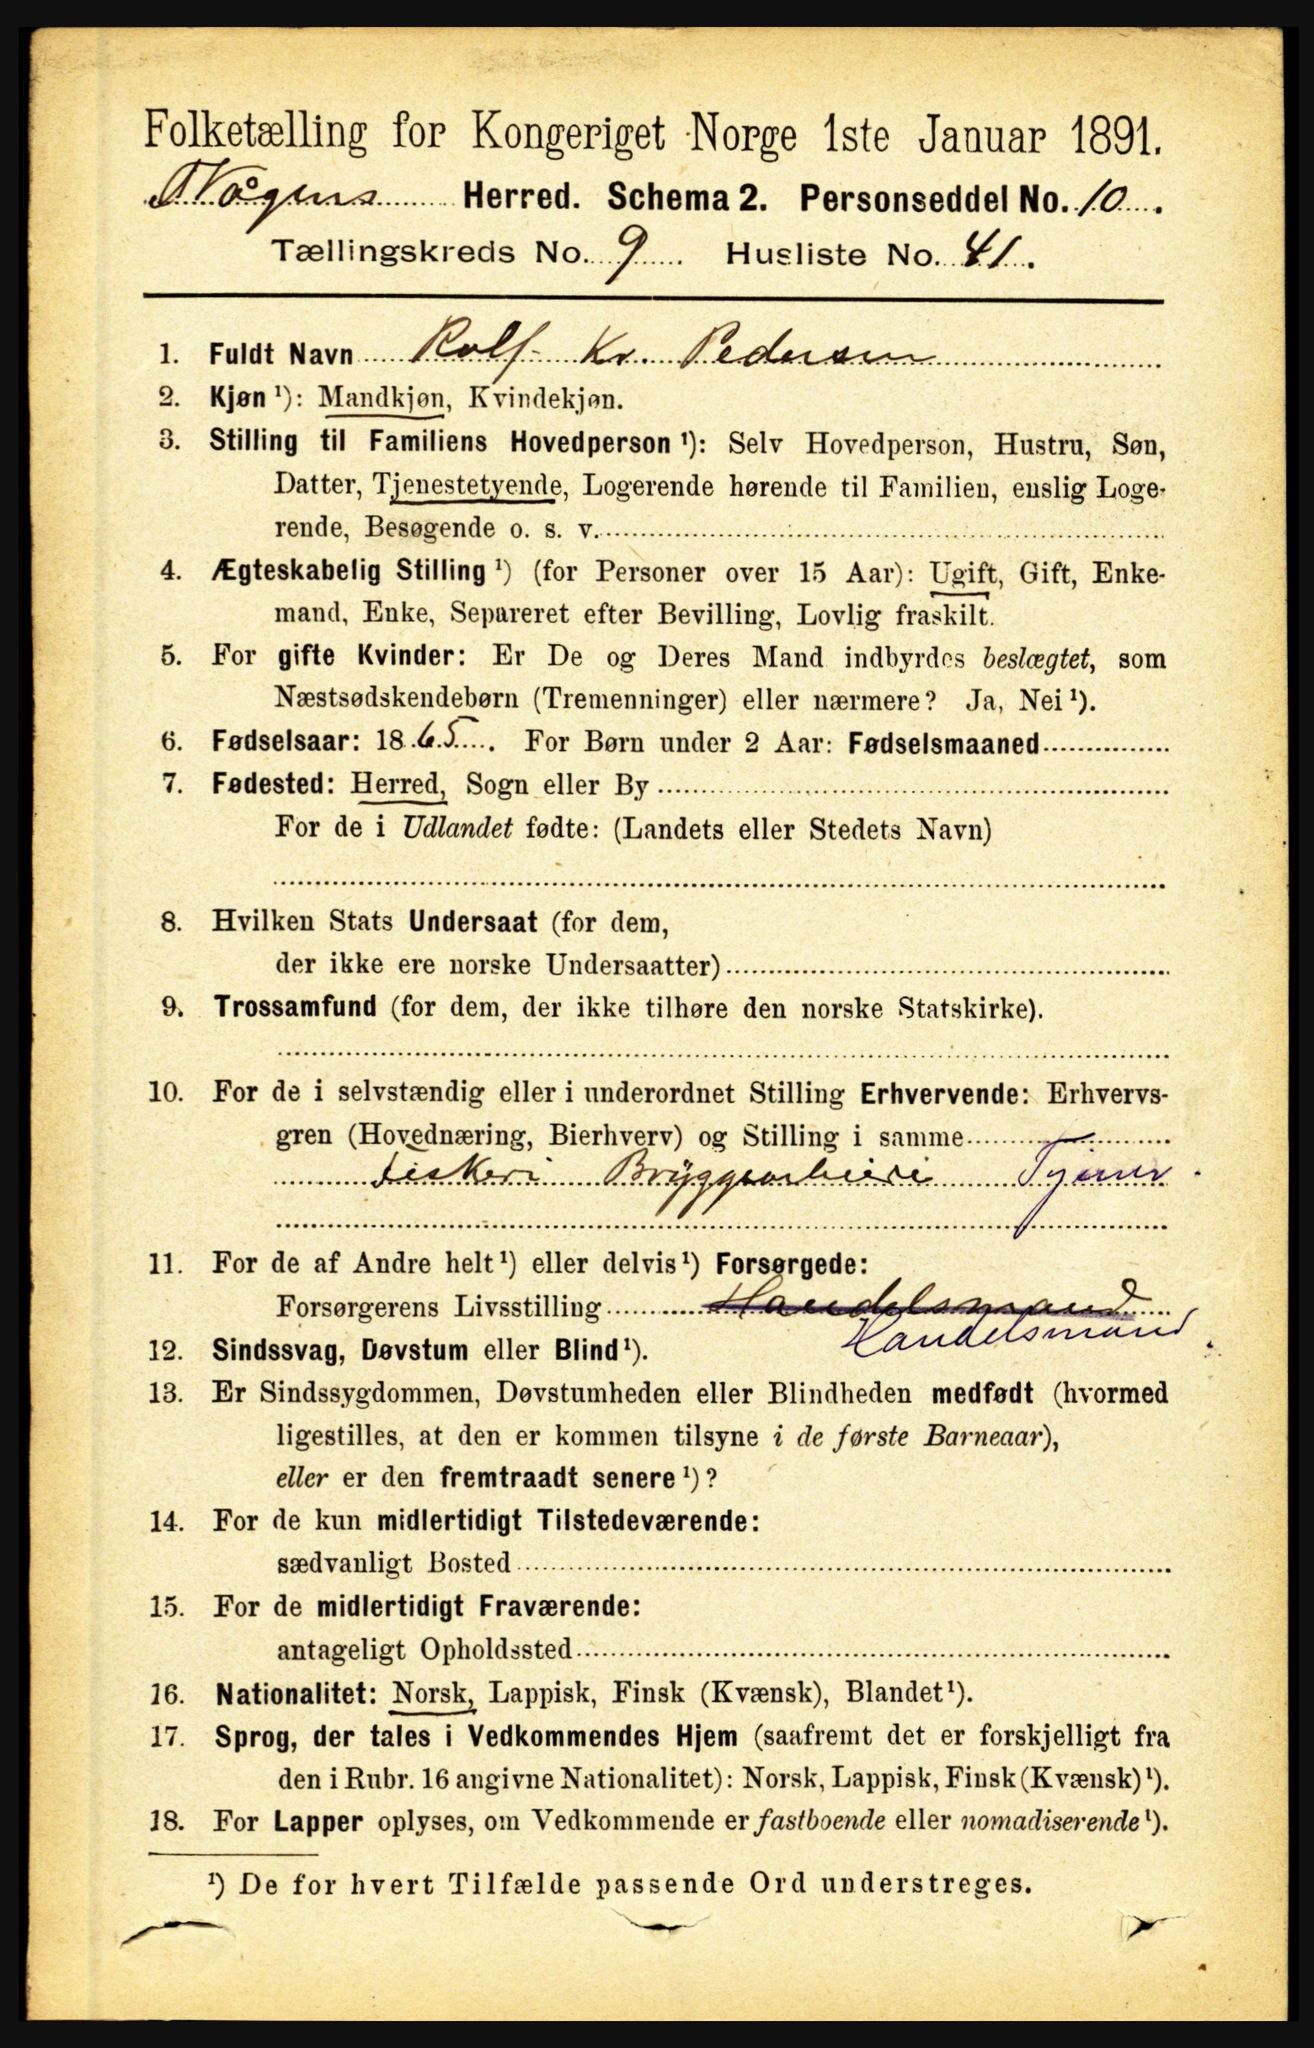 Folketælling for Kongeriget Norge 1ste Januar 1891.
Vågens Herred. Schema 2. Personseddel No. 10.
Tællingskreds No. 9. Husliste No. 41.
1. Fuldt Navn Rolf Kr. Pedersen
2. Kjøn ¹): Mandkjøn, Kvindekjøn.
3. Stilling til Familiens Hovedperson ¹): Selv Hovedperson, Hustru, Søn,
Datter, Tjenestetyende, Logerende hørende til Familien, enslig Loge-
rende, Besøgende o. s. v.
4. Ægteskabelig Stilling ¹) (for Personer over 15 Aar): Ugift, Gift, Enke-
mand, Enke, Separeret efter Bevilling, Lovlig fraskilt.
5. For gifte Kvinder: Er De og Deres Mand indbyrdes beslægtet, som
Næstsødskendebørn (Tremenninger) eller nærmere? Ja, Nei ¹).
6. Fødselsaar: 1865. For Børn under 2 Aar: Fødselsmaaned
7. Fødested: Herred, Sogn eller By
For de i Udlandet fødte: (Landets eller Stedets Navn)
8. Hvilken Stats Undersaat (for dem,
der ikke ere norske Undersaatter)
9. Trossamfund (for dem, der ikke tilhøre den norske Statskirke).
10. For de i selvstændig eller i underordnet Stilling Erhvervende: Erhvervs-
gren (Hovednæring, Bierhverv) og Stilling i samme
Fiskeri Bryggearbeide Tjener.
11. For de af Andre helt ¹) eller delvis ¹) Forsørgede:
Forsørgerens Livsstilling Handelsmand
Handelsmand.
12. Sindssvag, Døvstum eller Blind ¹).
13. Er Sindssygdommen, Døvstumheden eller Blindheden medfødt (hvormed
ligestilles, at den er kommen tilsyne i de første Barneaar),
eller er den fremtraadt senere ¹)?
14. For de kun midlertidigt Tilstedeværende:
sædvanligt Bosted
15. For de midlertidigt Fraværende:
antageligt Opholdssted
16. Nationalitet: Norsk, Lappisk, Finsk (Kvænsk), Blandet ¹).
17. Sprog, der tales i Vedkommendes Hjem (saafremt det er forskjelligt fra
den i Rubr. 16 angivne Nationalitet): Norsk, Lappisk, Finsk (Kvænsk) ¹).
18. For Lapper oplyses, om Vedkommende er fastboende eller nomadiserende ¹).
¹) De for hvert Tilfælde passende Ord understreges.